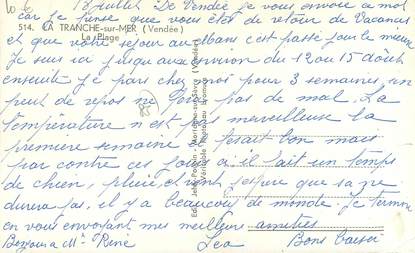 8 juillet De Vendée je vous envoie a mot
car je pense que vous êtes de retour de Vacances
514. LA TRANCHE-sur-MER (Vendée)
La Plage
et que votre séjour au bans c'est passé pour le mieux
je suis ici jusqu'au environ du 12 au 15 août
ensuite je pars chez nous pour 3 semaines, un
peut de repos ne fera pas de mal. La
température n'est pas merveilleuse la
première semaine il fesait bon mais
par contre ces jours ci il fait un temps
de chien, pluie, et vent j'espere que sa ne
durera pas, il y a beaucoup de monde je termine
en vous envoyant mes meilleurs amitiés
Bonjour a Mr René Lea Bons Baisers